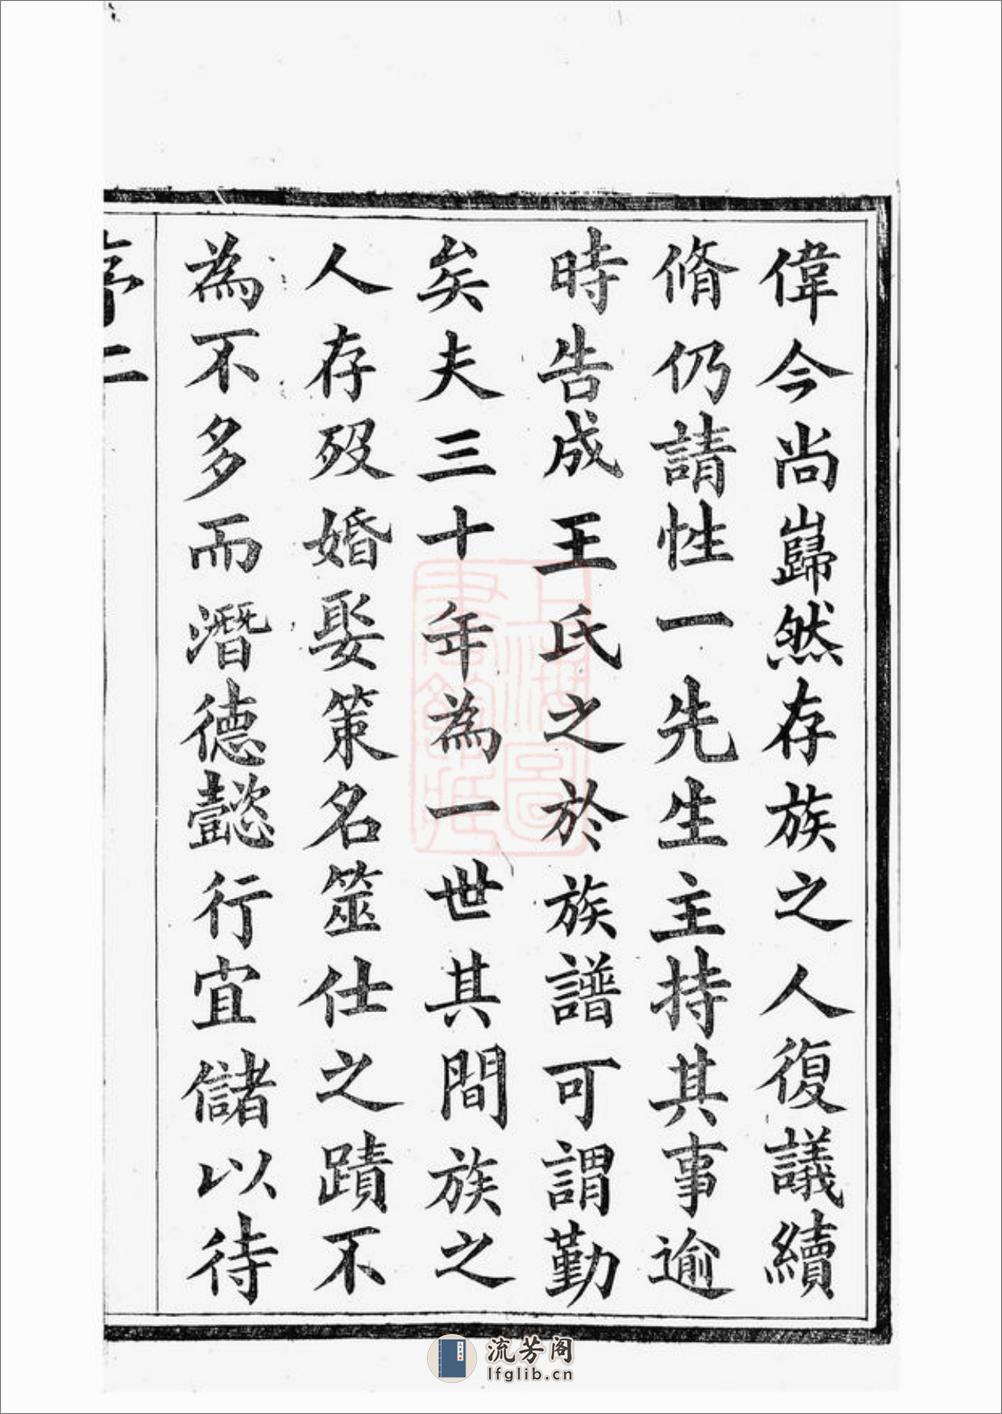 偉今尚巋然存族之人復議續
脩仍請性一先生主持其事逾
時告成王氏之於族譜可謂勤
矣夫三十年為一世其間族之
人存歿婚娶策名筮仕之蹟不
為不多而潛德懿行宜儲以待
序二
上海圖書館藏
流芳阁
lfglib.cn